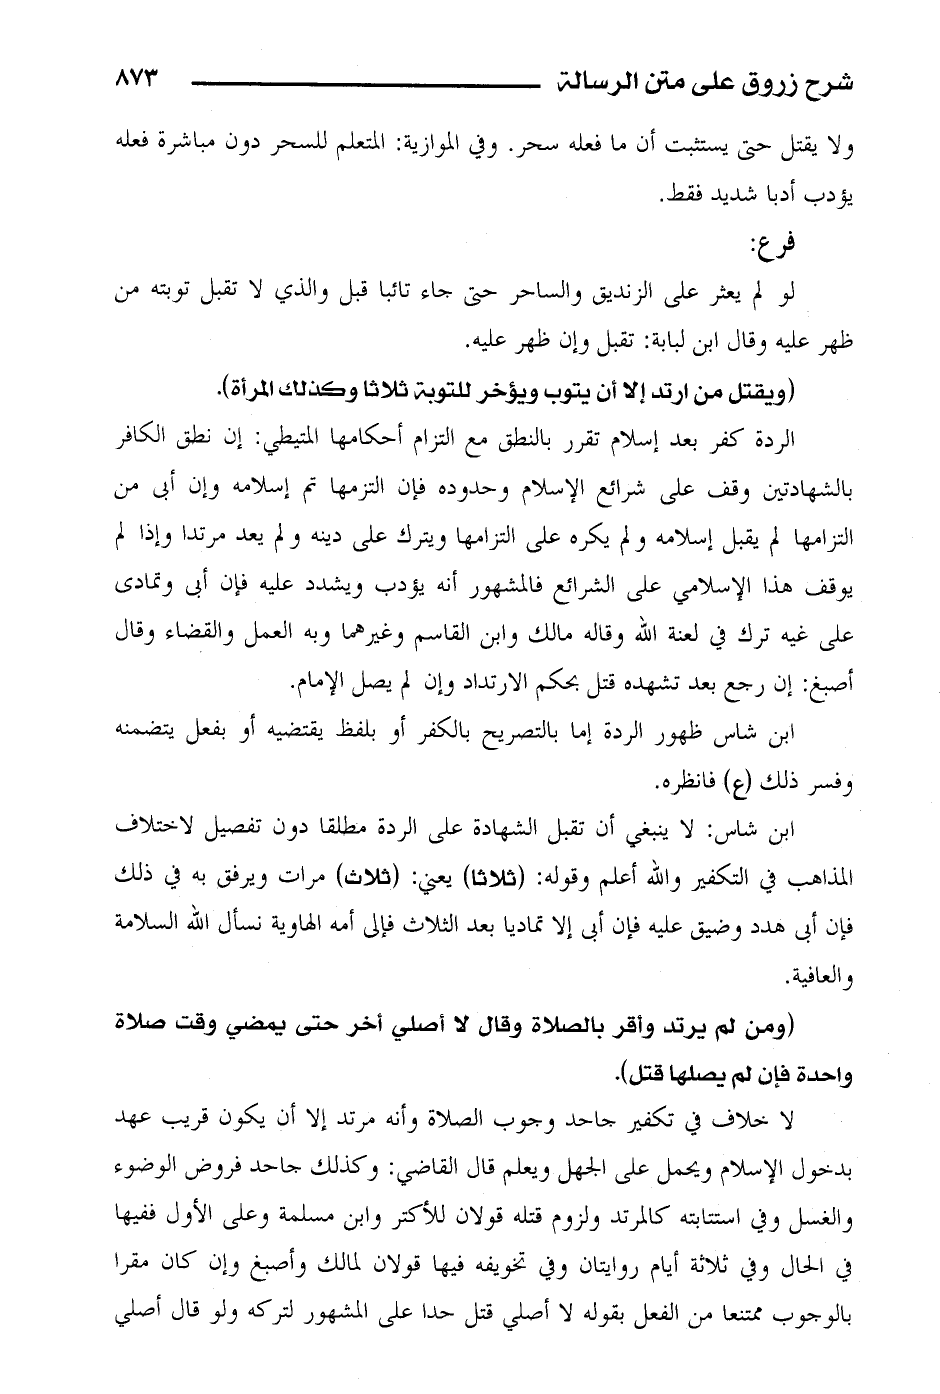 شرح زروق على متن الرسالة ٨٧٣
ولا يقتل حتى يستثبت أن ما فعله سحر. وفي الموازية: المتعلم للسحر دون مباشرة فعله
يؤدب أدبا شديد فقط.
فرع:
لو لم يعثر على الزنديق والساحر حتى جاء تائبا قبل والذي لا تقبل توبته من
ظهر عليه وقال ابن لبابة: تقبل وإن ظهر عليه.
(ويقتل من ارتد إلا أن يتوب ويؤخر للتوبة ثلاثا وكذلك المرأة).
الردة كفر بعد إسلام تقرر بالنطق مع التزام أحكامها المتيطي: إن نطق الكافر
بالشهادتين وقف على شرائع الإسلام وحدوده فإن التزمها تم إسلامه وإن أبى من
التزامها لم يقبل إسلامه ولم يكره على التزامها ويترك على دينه ولم يعد مرتدا وإذا لم
يوقف هذا الإسلامي على الشرائع فالمشهور أنه يؤدب ويشدد عليه فإن أبى وتمادى
على غيه ترك في لعنة الله وقاله مالك وابن القاسم وغيرهما وبه العمل والقضاء وقال
أصبغ: إن رجع بعد تشهده قتل بحكم الارتداد وإن لم يصل الإمام.
ابن شاس ظهور الردة إما بالتصريح بالكفر أو بلفظ يقتضيه أو بفعل يتضمنه
وفسر ذلك (ع) فانظره.
ابن شاس: لا ينبغي أن تقبل الشهادة على الردة مطلقا دون تفصيل لاختلاف
المذاهب في التكفير والله أعلم وقوله: (ثلاثا) يعني: (ثلاث) مرات ويرفق به في ذلك
فإن أبى هدد وضيق عليه فإن أبى إلا تماديا بعد الثلاث فإلى أمه الهاوية نسأل الله السلامة
والعافية.
(ومن لم يرتد وأقر بالصلاة وقال لا أصلي أخر حتى يمضي وقت صلاة
واحدة فإن لم يصلها قتل).
لا خلاف في تكفير جاحد وجوب الصلاة وأنه مرتد إلا أن يكون قريب عهد
بدخول الإسلام ويحمل على الجهل ويعلم قال القاضي: وكذلك جاحد فروض الوضوء
والغسل وفي استتابته كالمرتد ولزوم قتله قولان للأكتر وابن مسلمة وعلى الأول ففيها
في الحال وفي ثلاثة أيام روايتان وفي تخويفه فيها قولان لمالك وأصبغ وإن كان مقرا
بالوجوب ممتنعا من الفعل بقوله لا أصلي قتل حدا على المشهور لتركه ولو قال أصلي